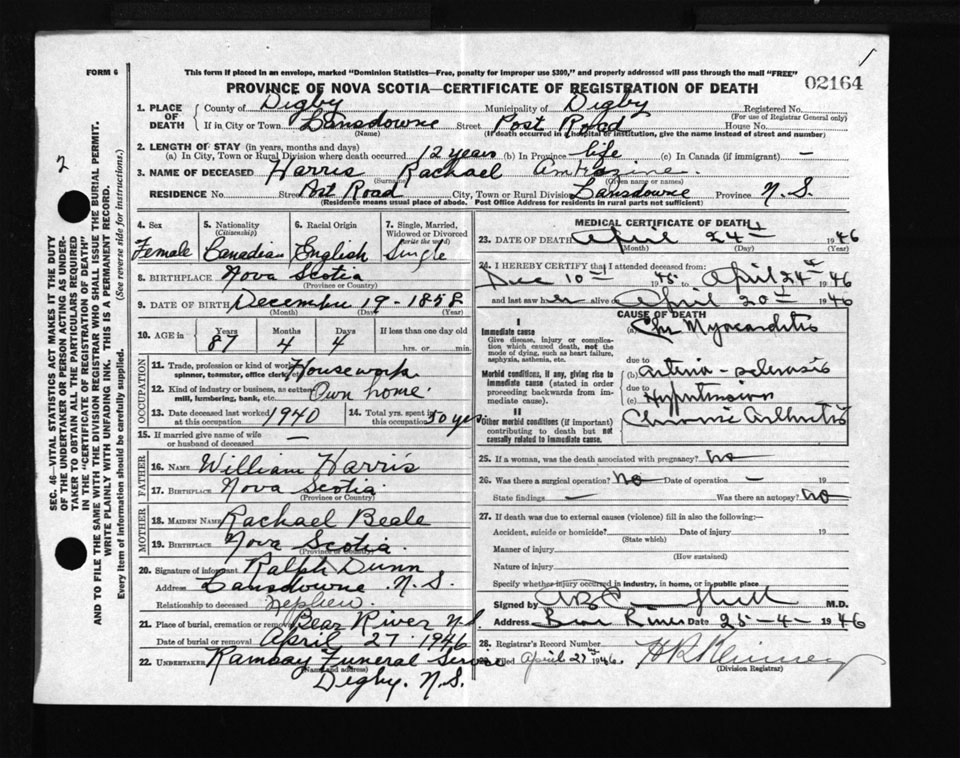 1
FORM 6
This form if placed in an envelope, marked "Dominion Statistics—Free, penalty for improper use $300," and properly addressed will pass through the mail "FREE"
02164
PROVINCE OF NOVA SCOTIA—CERTIFICATE OF REGISTRATION OF DEATH
1. PLACE OF DEATH
County of Digby Municipality of Digby Registered No.
(For use of Registrar General only)
If in City or Town Lansdowne Street Post Road House No.
(Name) (If death occurred in a hospital or institution, give the name instead of street and number)
2. LENGTH OF STAY (in years, months and days)
(a) In City, Town or Rural Division where death occurred 12 years (b) In Province life (c) In Canada (if immigrant) —
3. NAME OF DECEASED Harris Rachael
(Surname) (Given name or names)
RESIDENCE No. Street Post Road City, Town or Rural Division Lansdowne Province N.S.
(Residence means usual place of abode. Post Office Address for residents in rural parts not sufficient)
4. Sex 5. Nationality 6. Racial Origin 7. Single, Married, Widowed or Divorced
(Citizenship) (write the word)
Female Canadian English Single
8. BIRTHPLACE Nova Scotia
(Province or Country)
9. DATE OF BIRTH December 19-1858
(Month) (Day) (Year)
10. AGE in Years Months Days If less than one day old
87 4 4 hrs. or min.
OCCUPATION
11. Trade, profession or kind of work as spinner, teamster, office clerk, etc. Housework
12. Kind of industry or business, as cotton mill, lumbering, bank, etc. Own home.
13. Date deceased last worked at this occupation 1940 14. Total yrs. spent in this occupation 50 yrs
15. If married give name of wife or husband of deceased —
FATHER
16. NAME William Harris
17. BIRTHPLACE Nova Scotia
(Province or Country)
MOTHER
18. MAIDEN NAME Rachael Beale
19. BIRTHPLACE Nova Scotia.
(Province or Country)
20. Signature of informant Ralph Dunn
Address Lansdowne N.S.
Relationship to deceased Nephew.
21. Place of burial, cremation or removal Bear River N.S.
Date of burial or removal April 27. 1946
22. UNDERTAKER Ramsay Funeral Service
(Name and address)
Digby. N.S.
MEDICAL CERTIFICATE OF DEATH
23. DATE OF DEATH April 24th 1946
(Month) (Day) (Year)
24. I HEREBY CERTIFY that I attended deceased from:
Dec 10th 1945 to April 24th 1946
and last saw her alive on April 20th 1946
CAUSE OF DEATH
I
Immediate cause (a) Chr Myocarditis
Give disease, injury or complication which caused death, not the mode of dying, such as heart failure, asphyxia, asthenia, etc.
due to
Morbid conditions, if any, giving rise to immediate cause (stated in order proceeding backwards from immediate cause). (b) arterio-sclerosis
due to
(c) Hypertension
II
Other morbid conditions (if important) contributing to death but not causally related to immediate cause. Chronic Arthritis
25. If a woman, was the death associated with pregnancy? No
26. Was there a surgical operation? No Date of operation —
State findings — Was there an autopsy? No
27. If death was due to external causes (violence) fill in also the following:—
Accident, suicide or homicide? Date of injury 19
(State which)
Manner of injury
(How sustained)
Nature of injury
Specify whether injury occurred in industry, in home, or in public place
Signed by M.D.
Address Bear River Date 25-4- 1946
28. Registrar's Record Number
Filed April 27th 1946.
(Division Registrar)
2
SEC. 46—VITAL STATISTICS ACT MAKES IT THE DUTY
OF THE UNDERTAKER OR PERSON ACTING AS UNDER-
TAKER TO OBTAIN ALL THE PARTICULARS REQUIRED
IN THE "CERTIFICATE OF REGISTRATION OF DEATH"
AND TO FILE THE SAME WITH THE DIVISION REGISTRAR WHO SHALL ISSUE THE BURIAL PERMIT.
WRITE PLAINLY WITH UNFADING INK. THIS IS A PERMANENT RECORD.
Every item of information should be carefully supplied. (See reverse side for instructions.)